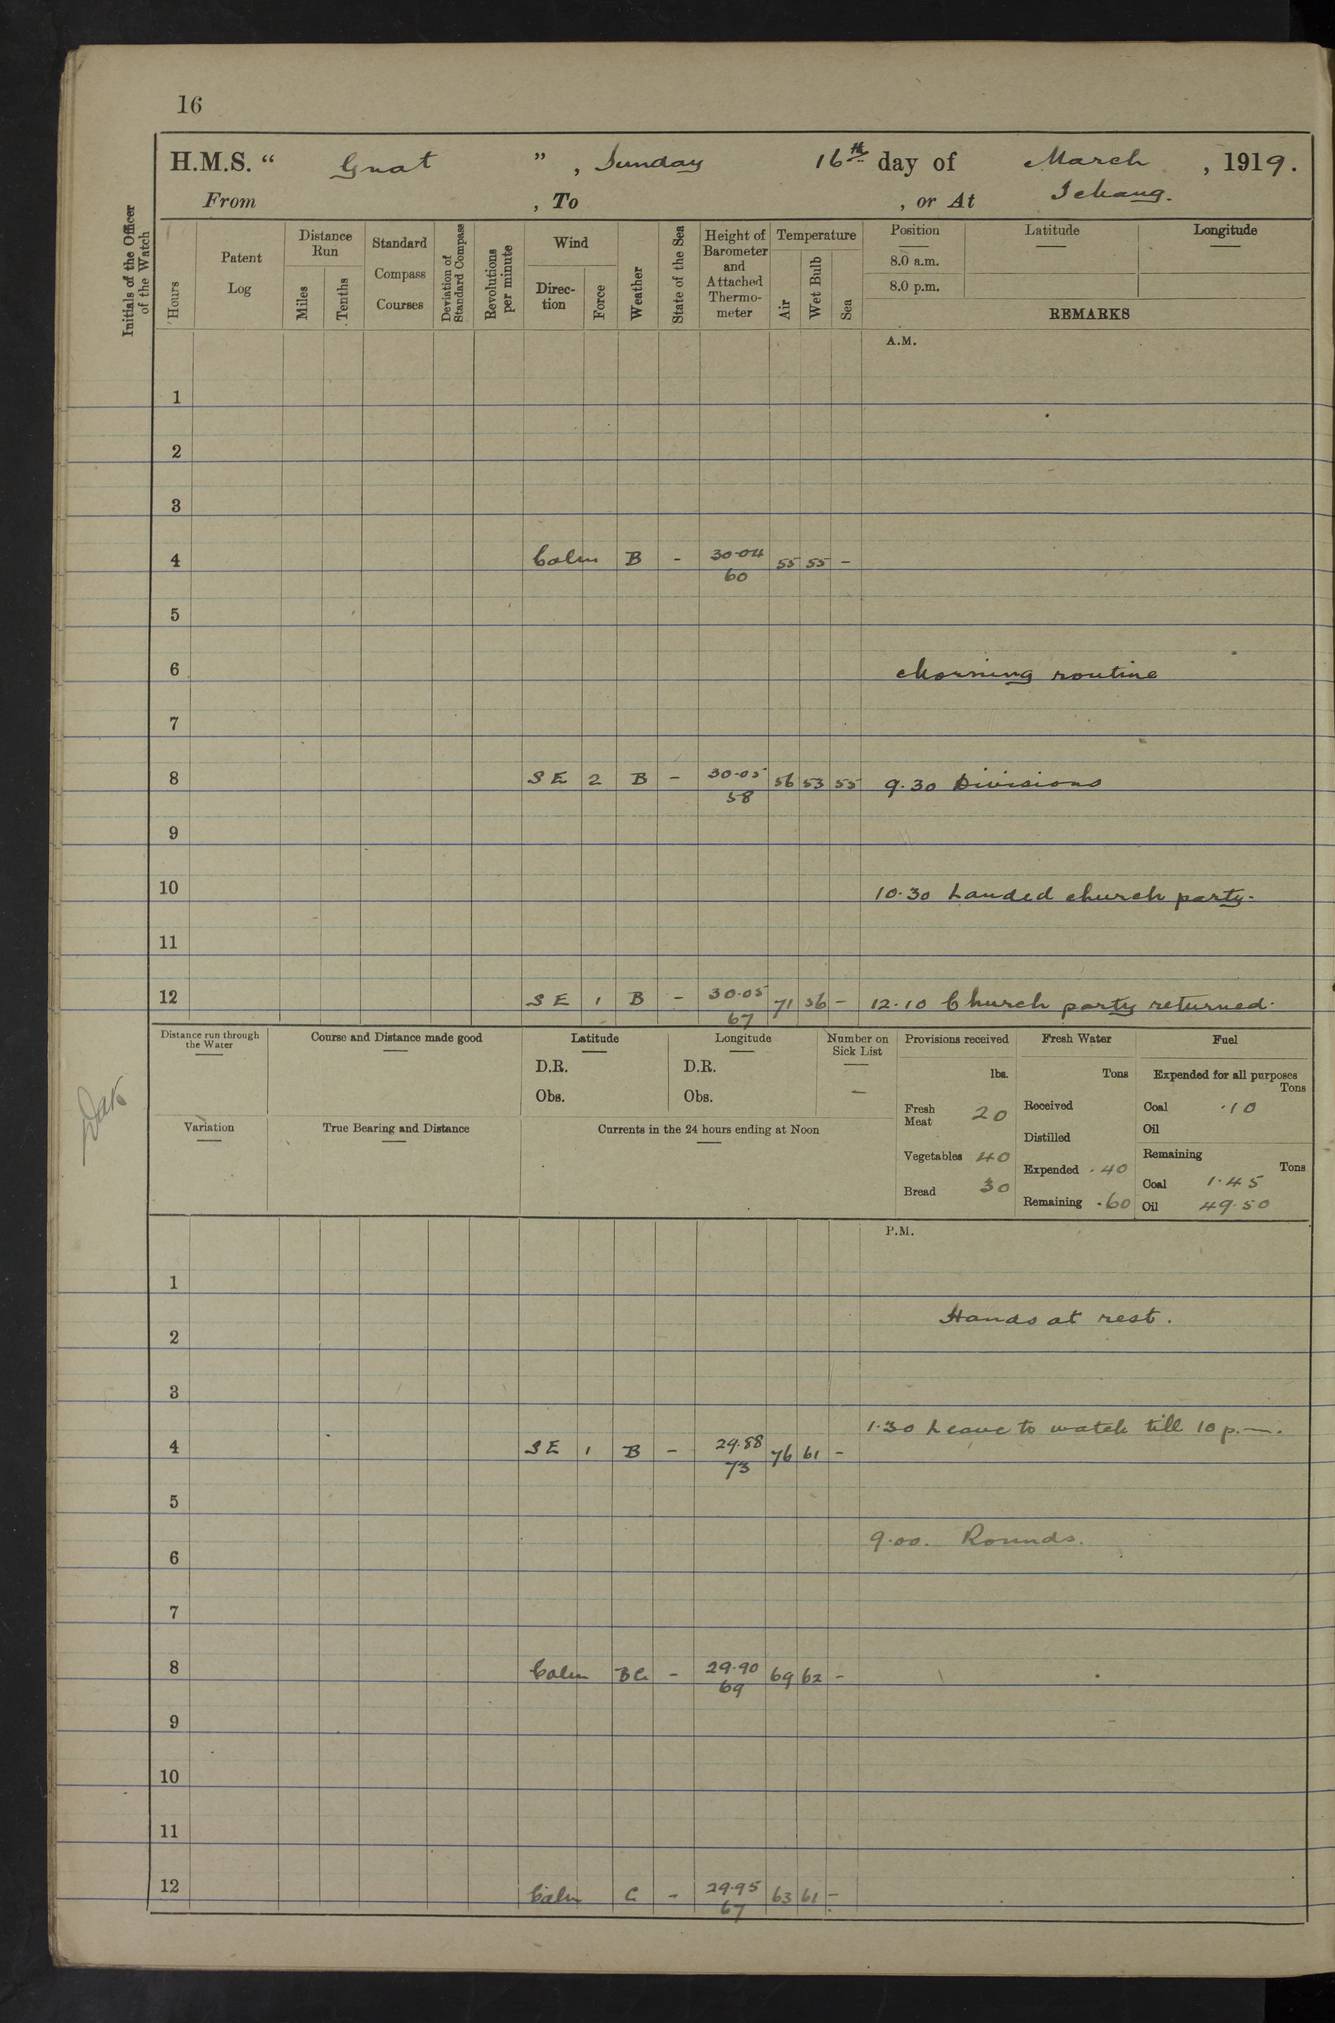 16
H.M.S. " Gnat ", Sunday 16th day of March, 1919.
From , To , or At Ichang.
Initials of the Officer of the Watch
Hours
Patent Log
Distance Run
Miles
Tenths
Standard Compass Courses
Deviation of Standard Compass
Revolutions per minute
Wind
Direction
Force
Weather
State of the Sea
Height of Barometer and Attached Thermometer
Temperature
Air
Wet Bulb
Sea
Position
8.0 a.m.
8.0 p.m.
Latitude
Longitude
REMARKS
A.M.
1
2
3
4 Calm B - 30.04 60 55 55 -
5
6 Morning routine
7
8 SE 2 B - 30.05 58 56 53 55 9.30 Divisions
9
10 10.30 Landed church party.
11
12 SE 1 B - 30.05 67 71 56 - 12.10 Church party returned.
Distance run through the Water
Course and Distance made good
Latitude
D.R.
Obs.
Longitude
D.R.
Obs.
Number on Sick List
-
Variation
True Bearing and Distance
Currents in the 24 hours ending at Noon
Provisions received
lbs.
Fresh Meat 20
Vegetables 40
Bread 30
Fresh Water
Tons
Received
Distilled
Expended .40
Remaining .60
Fuel
Expended for all purposes
Tons
Coal .10
Oil
Remaining
Tons
Coal 1.45
Oil 49.50
P.M.
1
Hands at rest.
2
3
1.30 Leave to watch till 10 p.m.
4 SE 1 B - 29.88 73 76 61 -
5
9.00. Rounds.
6
7
8 Calm BC - 29.90 69 69 62 -
9
10
11
12 Calm C - 29.95 67 63 61 -